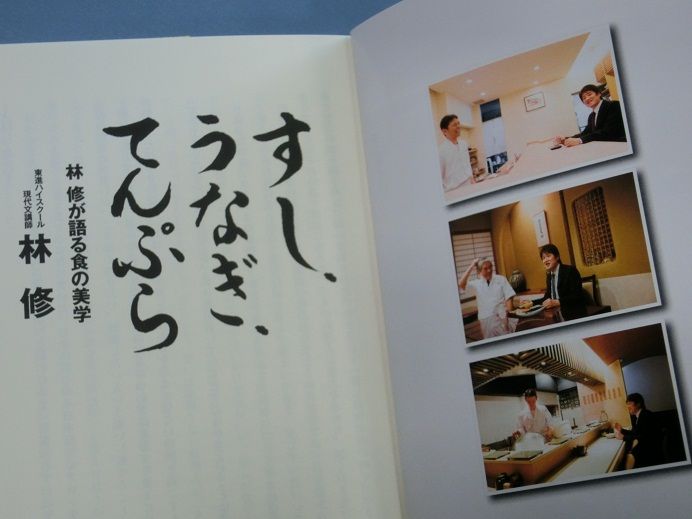 すし、
うなぎ、
てんぷら
林 修が語る食の美学
東進ハイスクール
現代文講師
林 修